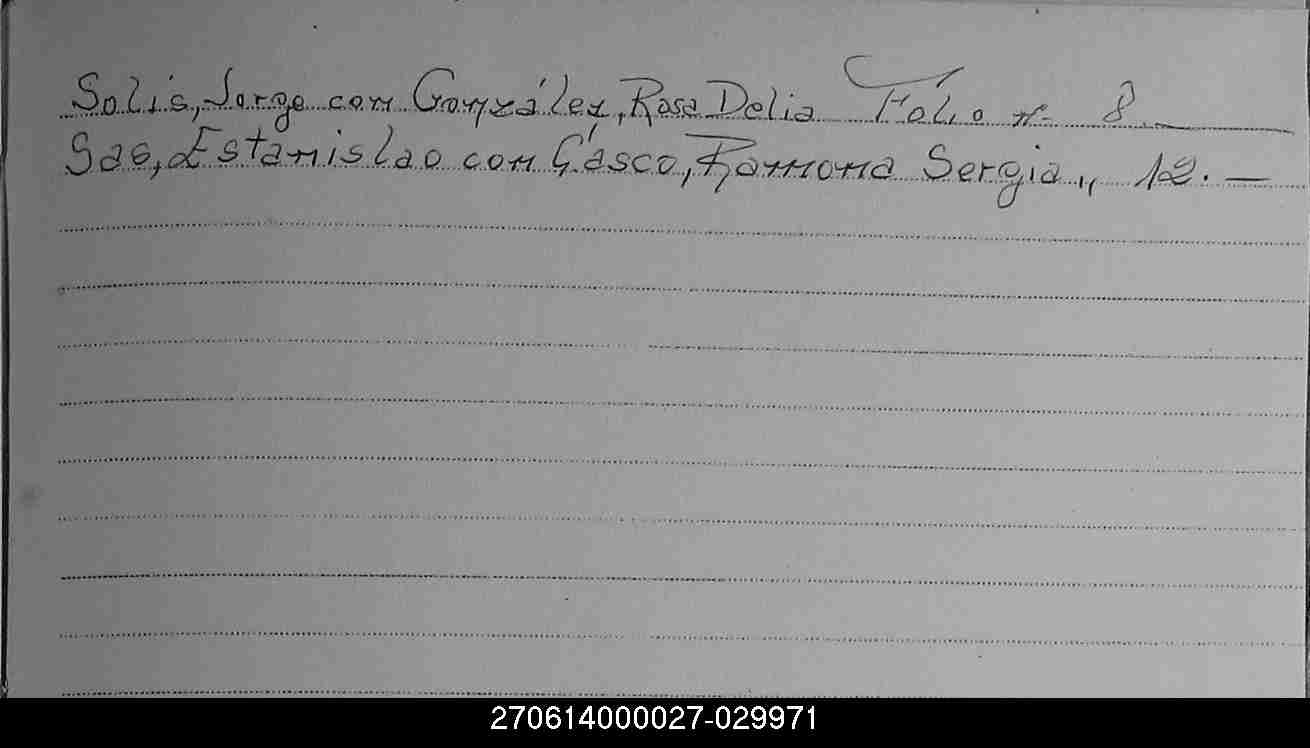 Solis, Jorge con González, Rosa Delia Folio n- 8.
Sas, Estanislao con Gásco, Ramona Sergia ,, 12. —
270614000027-029971